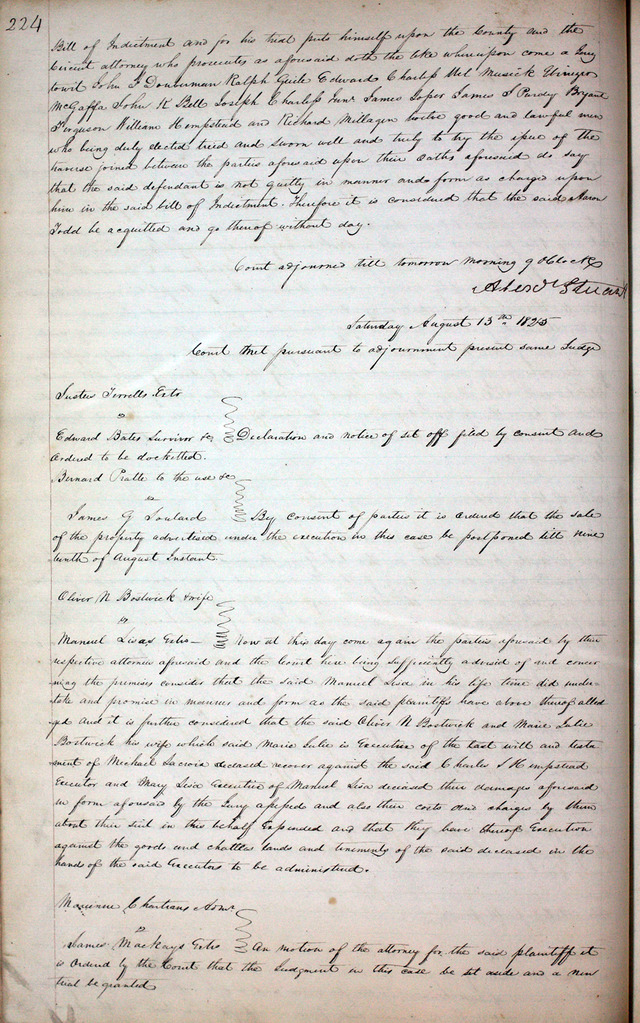 224
Bill of Indictment and for his trial puts himself upon the County and the
Circuit attorney who prosecutes as aforesaid doth the like whereupon come a Jury
towit John D Ralph Guild Edward Charless Mussick
McGaffa John K Bell Joseph Charless Junr James Loper James S Purdy Bryant
Ferguson William Hempstead and Richard Milligan twelve good and lawful men
who being duly elected tried and sworn well and truly to try the issue of the
traverse joined between the parties aforesaid upon their oaths aforesaid do say
that the said defendant is not guilty in manner and form as charged upon
him in the said bill of Indictment. Therefore it is considered that the said Aaron
Todd be acquitted and go thereof without day.
Court adjourned till tomorrow morning 9 oClock
Alexr Stuart
Saturday August 13th 1825
Court met pursuant to adjournment present same Judge
Exrs
vs
Edward Bates Survivor &c Declaration and notice of set off filed by consent and
ordered to be docketted.
Bernard Pratte to the use &c
vs
James G Soulard By consent of parties it is ordered that the sale
of the property advertised under the execution in this case be postponed till nine
teenth of August Instant.
Oliver N Bostwick & wife
vs
Manuel Lisas Exrs Now at this day come again the parties aforesaid by their
respective attornies aforesaid and the Court here being sufficiently advised of and concer
ning the premises consider that the said Manuel Lisa in his life time did under
take and promise in manner and form as the said plaintiffs have above thereof alled
ged And it is further considered that the said Oliver N Bostwick and Marie Julie
Bostwick his wife which said Marie Julie is Executrix of the last will and testa
ment of Michael Lacroix deceased recover against the said Charles S Hempstead
Executor and Mary Lisa Executrix of Manuel Lisa deceased their damages aforesaid
in form aforesaid by the Jury assessed and also their costs and charges by them
about their suit in this behalf Expended and that they have thereof Execution
against the goods and chattles lands and tenements of the said deceased in the
hands of the said Executors to be administred.
Chartrans Admr
vs
James Mackays Exrs On motion of the attorney for the said plaintiff it
is ordered by the Court that the Judgment in this case be set aside and a new
trial be granted